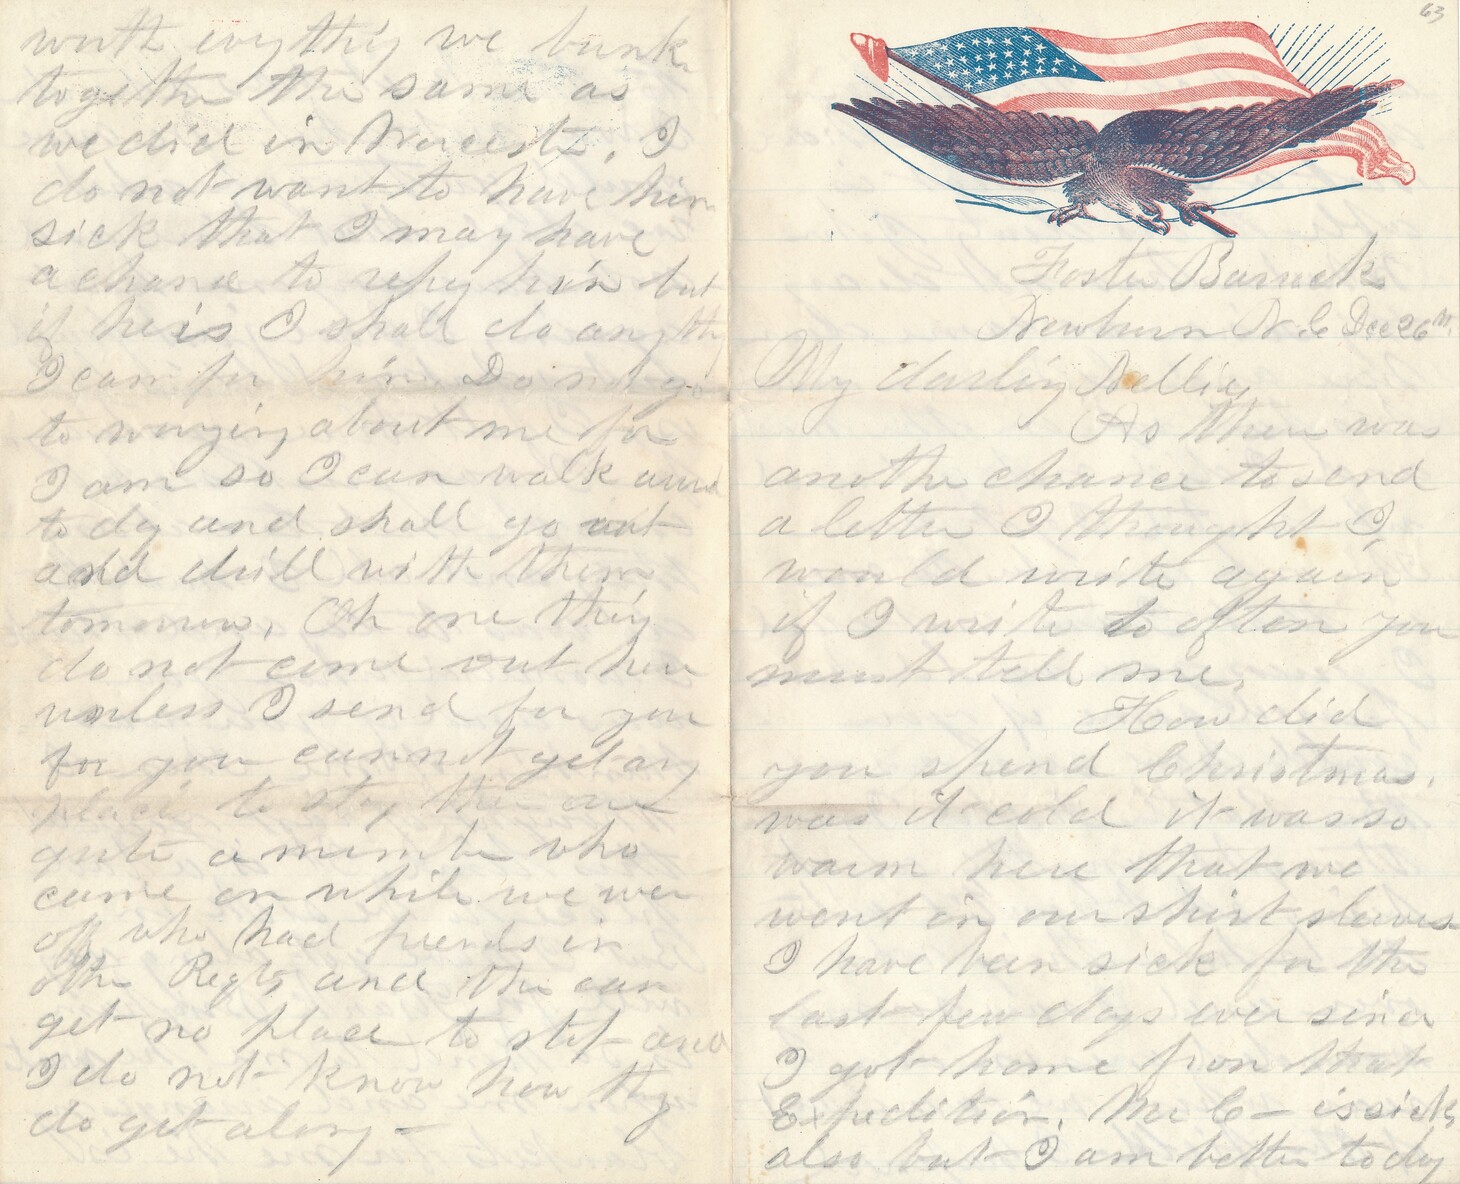 63
Foster Barrack
Newburn N. C Dec 26th
My darling Nellie
As there was
another chance to send
a letter I thought I
would write again
if I write to often you
must tell me.
How did
you spend Christmas.
was it cold it was so
warm here that we
went in our shirt sleeves
I have been sick for the
last few days ever since
I got home from that
Expedition. Mr C— is sick
also but I am better to day
worth evything we bunk
together the same as
we did in Worcester. I
do not want to have him
sick that I may have
a chance to repay him but
if he is I shall do anyth
I can for him. Do not go
to worrying about me for
I am so I can walk around
to day and shall go out
and drill with them
tomorrow. Oh one thing
do not come out here
unless I send for you
for you cannot get any
place to stay there are
quite a number who
came on while we were
off who had friends in
other Regts and they can
get no place to stop and
I do not know how they
do get along —